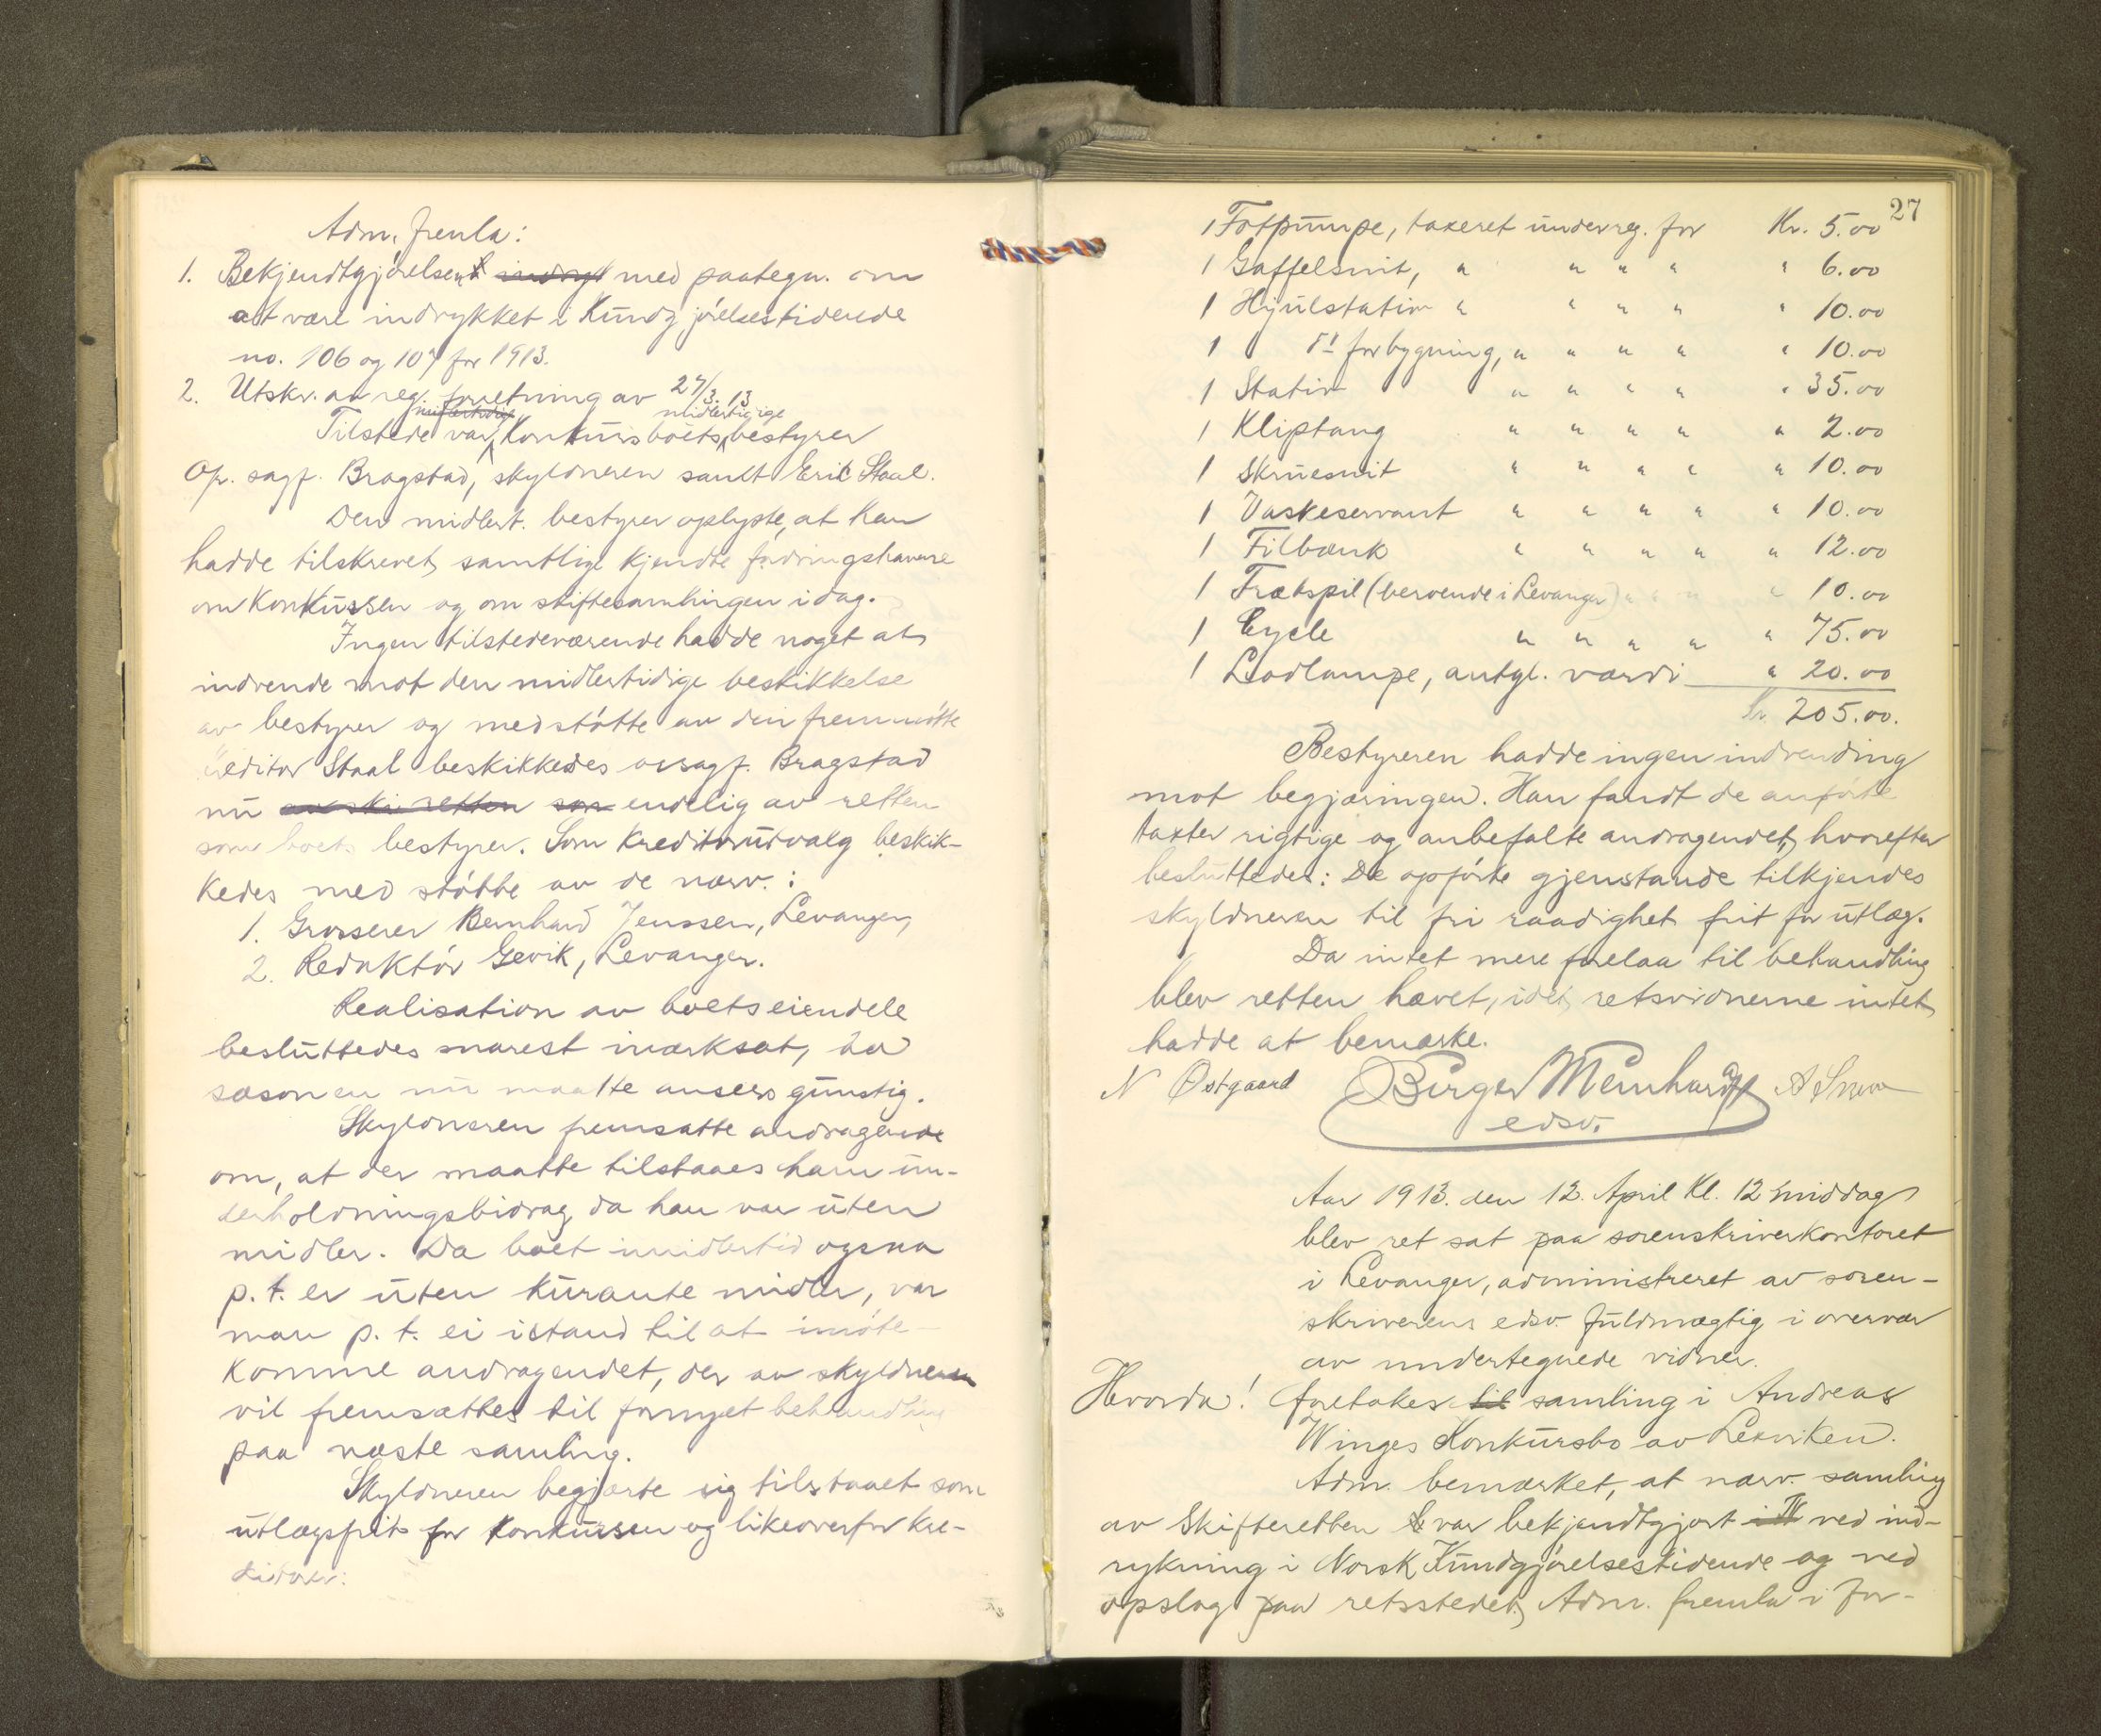 Adm. fremla:
1. Bekjendtgjørelsen indrykt med paategn. om
at være indrykket i Kundgjørelsestidende
no. 106 og 107 for 1913.
2. Utskr. av reg. forretning av 27/3. 13
midlertidige midlertigige
Tilstede var Konkursboets bestyrer
Op. sagf. Bragstad, skyldneren samt Eric Staal.
Den midlert. bestyrer oplyste, at han
hadde tilskrevet samtlige kjendte fordringshavere
om Konkursen og om skiftesamlingen idag.
Ingen tilstedeværende hadde noget at
indvende mot den midlertidige beskikkelse
av bestyrer og med støtte av den fremmøtte
kreditor Staal beskikkedes ovsagf. Bragstad
nu av skifteretten som endelig av retten
som boets bestyrer. Som Kreditorutvalg beskik-
kedes med støtte av de nærv.:
1. Grosserer Bernhard Jenssen, Levanger,
2. Redaktør Gevik, Levanger.
Realisation av boets eiendele
besluttedes snarest iverksat, da
sæsonen nu maatte ansees gunstig.
Skyldneren fremsatte andragende
om, at der maatte tilstaaes ham un-
derholdningsbidrag, da han var uten
midler. Da boet imidlertid ogsaa
p. t. er uten kurante midler, var
man p. t. ei istand til at imøte-
komme andragendet, der av skyldneren
vil fremsættes til fornyet behandling
paa næste samling.
Skyldneren begjærte sig tilstaaet som
utlægsfrit for Konkursen og likeoverfor kre-
ditorer:
27
1 Fotpumpe, taxeret under reg. for Kr. 5.00
1 Gaffelsnit, " " " " " 6.00
1 Hjulstativ " " " " " 10.00
1 d° forbygning, " " " " " 10.00
1 Stativ " " " " " 35.00
1 Kliptang " " " " " 2.00
1 Skruesnit " " " " " 10.00
1 Vaskeservant " " " " " 10.00
1 Filbænk " " " " " 12.00
1 Trætspil (beroende i Levanger) " " " " 10.00
1 Cycle " " " " " 75.00
1 Lodlampe, antgl. værdi " 20.00
Kr. 205.00.
Bestyreren hadde ingen indvending
mot begjæringen. Han fandt de anførte
taxter rigtige og anbefalte andragendet, hvorefter
besluttedes: De opførte gjenstande tilkjendes
skyldneren til fri raadighet frit for utlæg.
Da intet mere forelaa til behandling
blev retten hævet, idet retsvidnerne intet
hadde at bemærke.
N Østgaard Birger Meinhardt A
edsv.
Aar 1913. den 12. April Kl. 12 middag
blev ret sat paa sorenskriverkontoret
i Levanger, administreret av soren-
skriverens edsv. fuldmægtig i overvær
av undertegnede vidner.
Hvorda! foretokes til samling i Andreas
Winges Konkursbo av Lexviken.
Adm. bemærket, at nærv. samling
av Skifteretten var bekjendtgjort ved ind-
rykning i Norsk Kundgjørelsestidende og ved
opslag paa retsstedet. Adm. fremla i for-